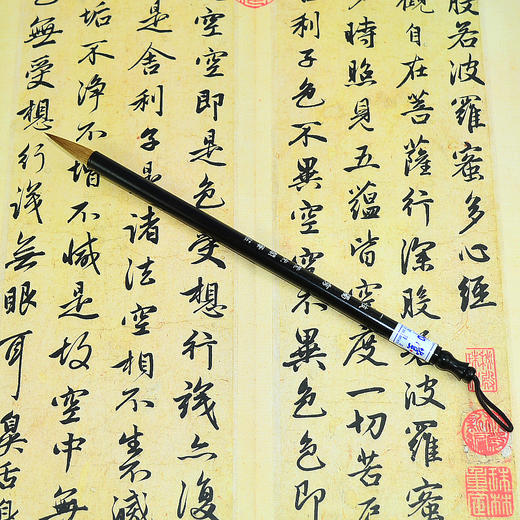 般若波羅蜜多心經
觀自在菩薩行深般若波羅蜜
時照見五蘊皆空度一切苦厄
利子色不異空空不異色色即
空空即是色受想行識亦復
是舍利子是諸法空相不生不滅
垢不淨不增不減是故空中無
色無受想行識無眼耳鼻舌身